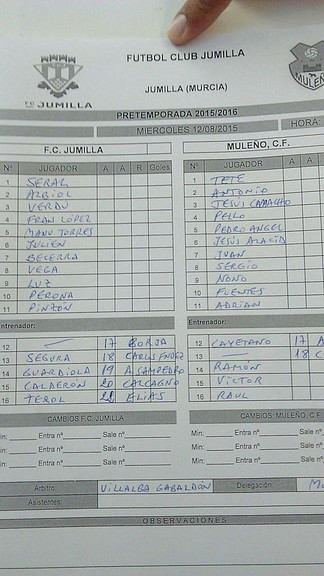 FUTBOL CLUB JUMILLA
JUMILLA (MURCIA)
JUMILLA
PRETEMPORADA 2015/2016
MIERCOLES 12/08/2015 HORA:
F.C. JUMILLA
Nº JUGADOR A A R Goles
1 SERAL
2 ARBIOL
3 VERDU
4 FRAN LÓPEZ
5 MANU TORRES
6 JULIEN
7 BECERRA
8 VEGA
9 LUZ
10 PERONA
11 PINZÓN
Entrenador:
12 — 17 BORJA
13 SEGURA 18
14 GUARDIOLA 19 A CAMPEDRO
15 CALDERÓN 20 CALCAGNO
16 TEROL 21 ELIAS
MULEÑO, C.F.
Nº JUGADOR A A
1 TETE
2 ANTONIO
3 JESÚS CAMACHO
4 PELLO
5 PEDRO ANGEL
6 JESÚS ALACID
7 JUAN
8 SERGIO
9 NONO
10 FUENTES
11 ADRIAN
Entrenador:
12 CAYETANO 17
13 — 18
14 RAMÓN
15 VÍCTOR
16 RAUL
CAMBIOS F.C. JUMILLA
Min: Entra nº Sale nº
Min: Entra nº Sale nº
CAMBIOS: MULEÑO, C.F.
Min: Entra nº Sale nº
Min: Entra nº Sale nº
Arbitro: VILLALBA GABALDÓN Delegación:
Asistentes:
OBSERVACIONES